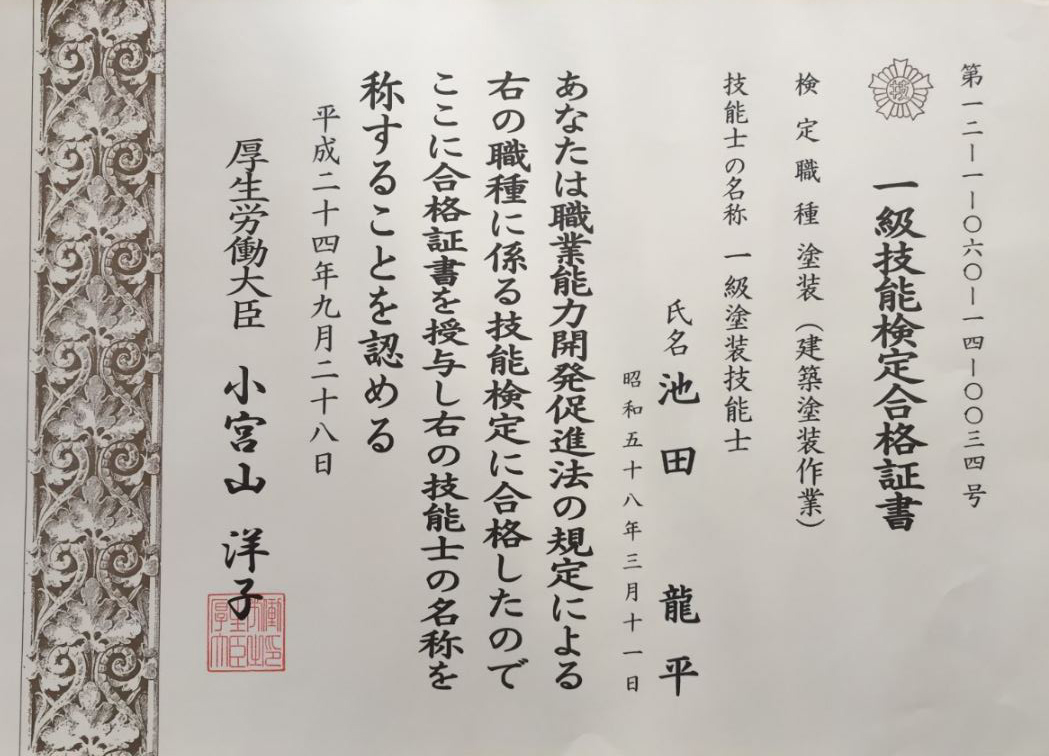 第一二ー一ー〇六〇ー一四ー〇〇三四号
一級技能検定合格証書
検定職種 塗装（建築塗装作業）
技能士の名称 一級塗装技能士
氏名 池田 龍平
昭和五十八年三月十一日
あなたは職業能力開発促進法の規定による
右の職種に係る技能検定に合格したので
ここに合格証書を授与し右の技能士の名称を
称することを認める
平成二十四年九月二十八日
厚生労働大臣 小宮山 洋子